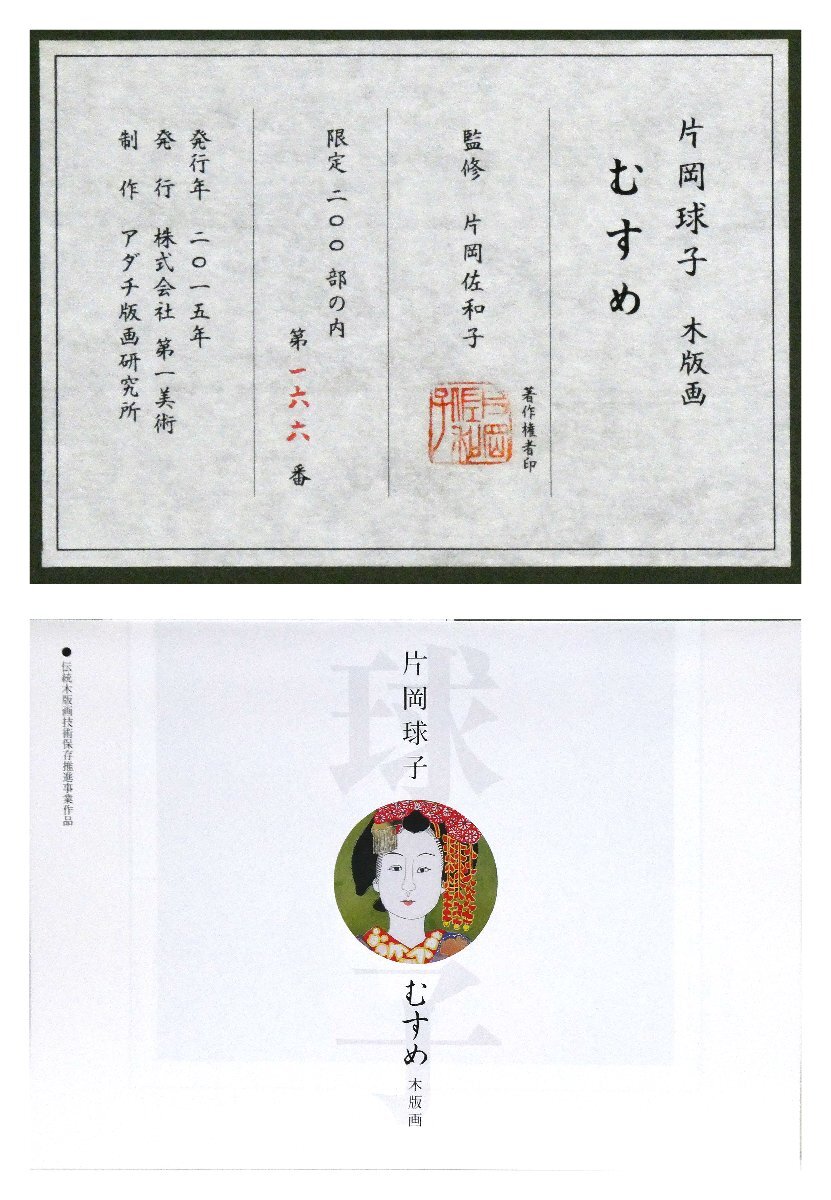 片岡球子 木版画
むすめ
著作権者印
監修 片岡佐和子
片岡佐和子
限定 二〇〇部の内
第 一六六 番
発行年 二〇一五年
発行 株式会社 第一美術
制作 アダチ版画研究所
片岡球子
むすめ 木版画
球子
●伝統木版画技術保存推進事業作品